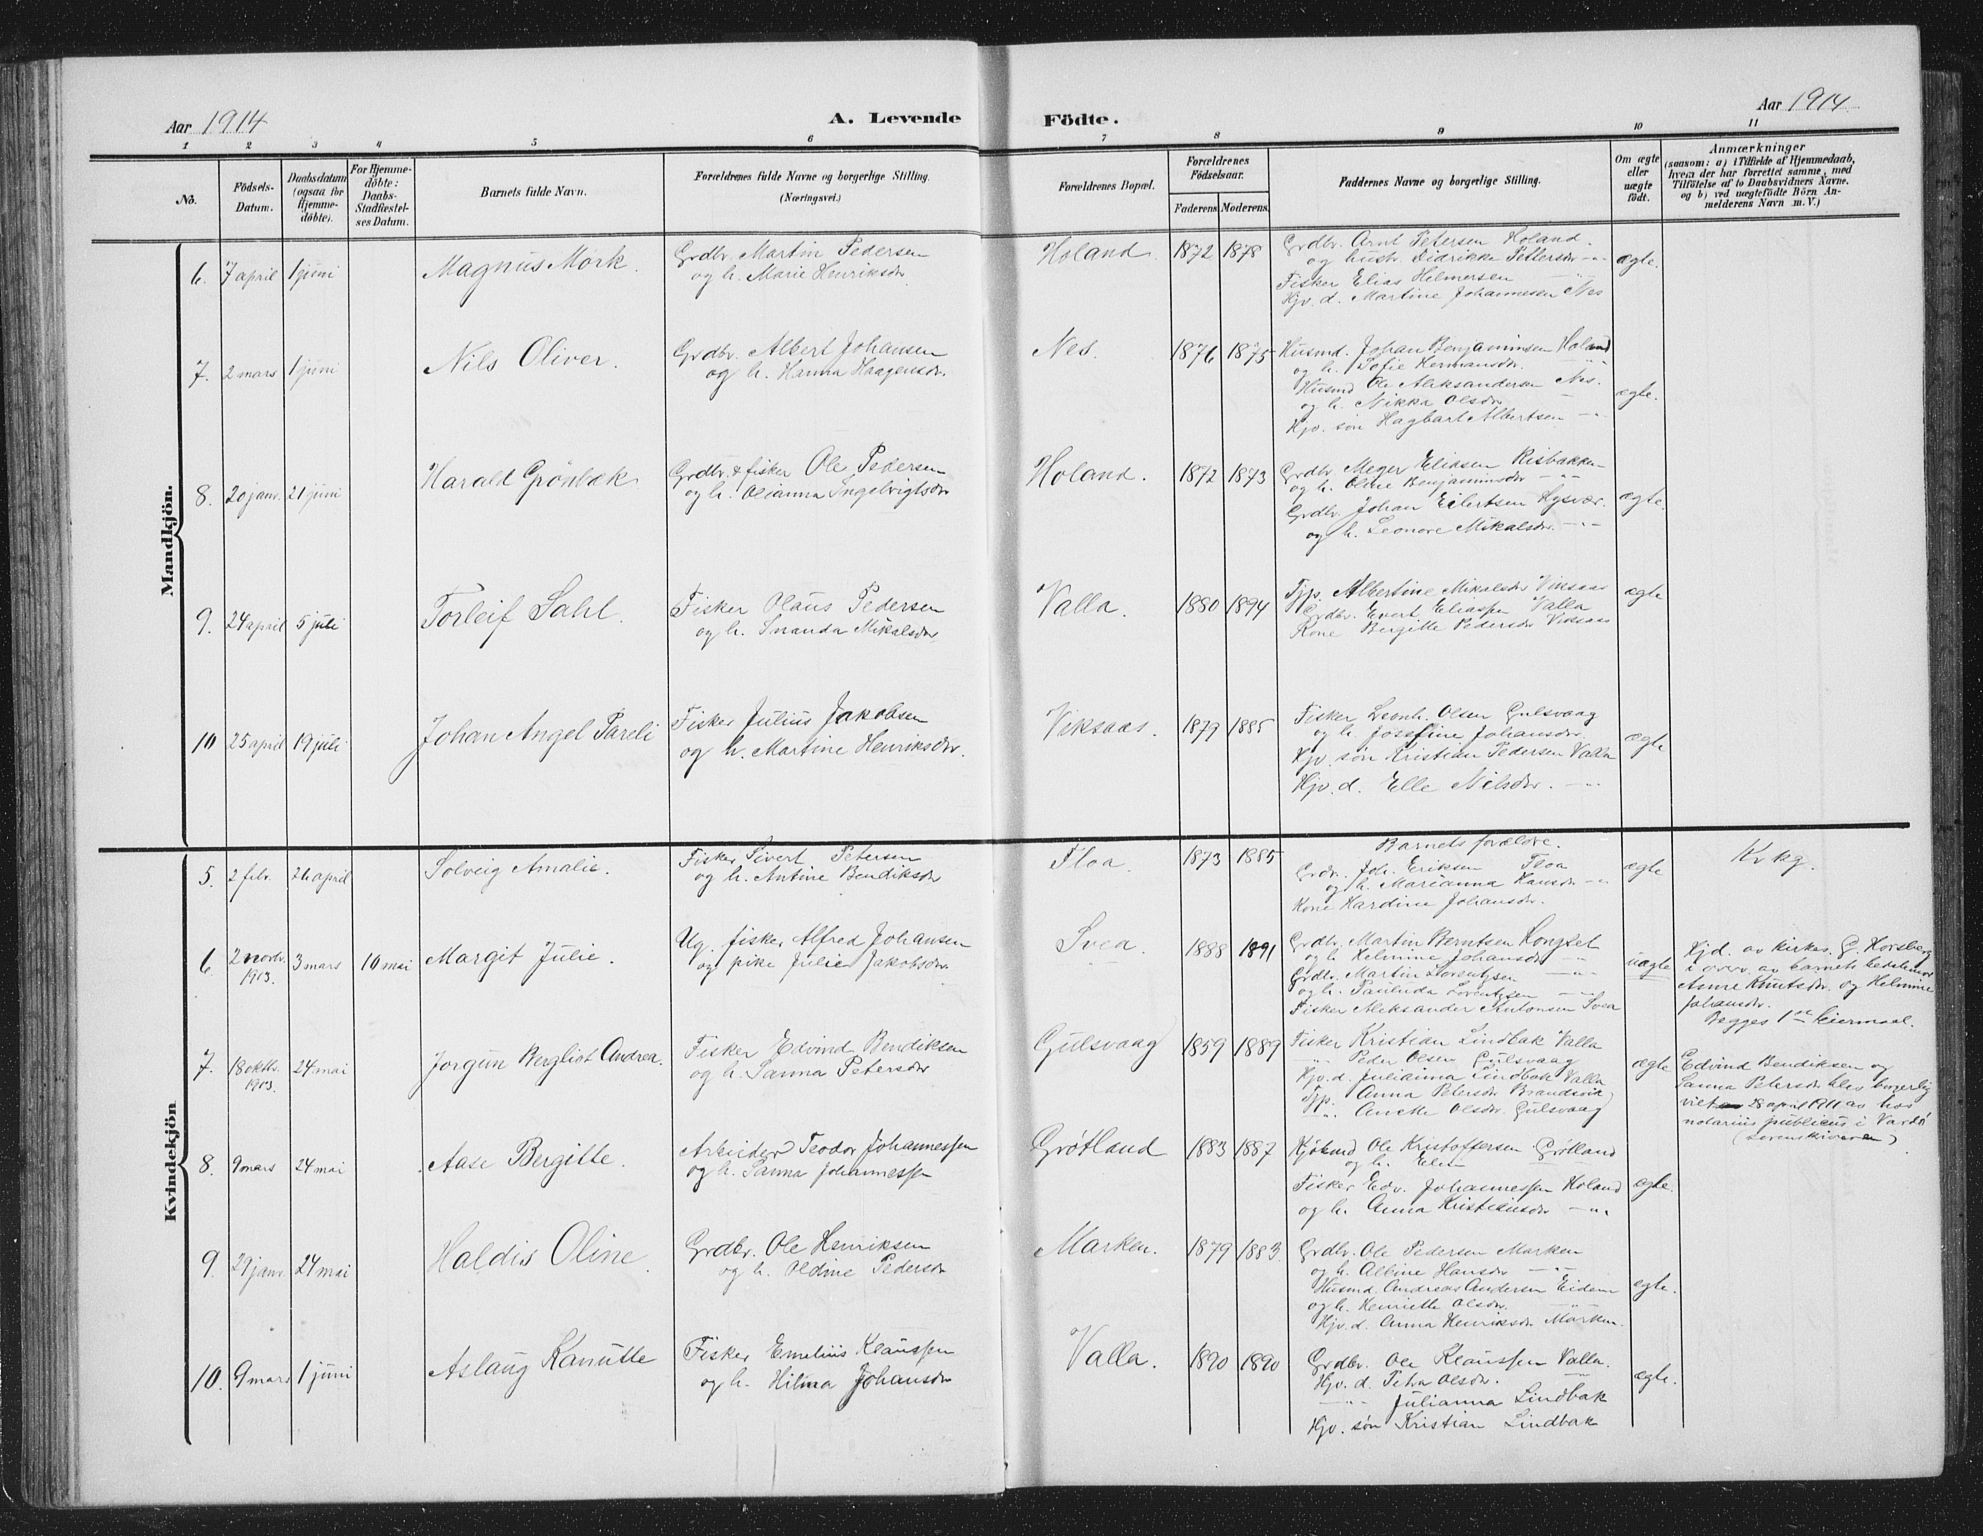 Aar 1914
A. Levende
Födte.
Aar 1914
1 2 3 4 5 6 7 8 9 10 11
No.
Födsels-
Datum.
Daabsdatum
(ogsaa for
Hjemme-
döbte).
For Hjemme-
döbte:
Daabs-
Stadfæstel-
ses Datum.
Barnets fulde Navn.
Forældrenes fulde Navne og borgerlige Stilling.
(Næringsvei.)
Forældrenes Bopæl.
Forældrenes
Födselsaar.
Faderens Moderens
Faddernes Navne og borgerlige Stilling.
Om ægte
eller
uægte
födt.
Anmærkninger
(saasom: a) i Tilfælde af Hjemmedaab,
hvem der har forrettet samme, med
Tilföielse af to Daabsvidners Navne.
og b) ved uægtefödte Börn An-
melderens Navn m. V.)
Mandkjön.
6. 7 april 1 juni Magnus Mörk.
Grdbr. Martin Pedersen
og h. Marie Henriksdr.
Holand. 1872 1878
Grdbr. Arnt Petersen Holand.
og hust. Didrikke Pettersdr -"-
Fisker Elias Helmersen -"-
Hjv. d. Martine Johannesen Nes
ægte.
7. 2 mars 1 juni Nils Oliver.
Grdbr. Albert Johansen
og h. Hanna Haagensdr.
Nes. 1876 1875
Husmd. Johan Benjaminsen Holand
og h. Sofie Hermansdr. "
Husmd Ole Aleksandersen Nes.
og h. Nikka Olsdr. "
Hjv. søn Hagbart Albertsen -"-
ægte.
8. 20 janv. 21 juni Harald Grönbæk
Grdbr. & fisker Ole Pedersen
og h. Olianna Ingebrigtsdr
Holand. 1872 1873
Grdbr Meyer Eliasen Risbakken
og h. Oline Benjaminsdr -"-
Grdbr. Johan Eilertsen Hysvær.
og h. Leonore Mikalsdr. -"-
ægte.
9. 24 april 5 juli Torleif Sahl.
Fisker Olaus Pedersen
og h. Snanda Mikalsdr
Valla. 1880 1894
Tjp. Albertine Mikalsdr Viksaas
Grdbr. Evert Eliassen Valla
Kone Bergitte Pedersdr Viksaas
ægte
10 25 april 19 juli Johan Angel Pareli
Fisker Julius Jakobsen
og h. Martine Henriksdr.
Viksaas. 1879 1885
Fisker Leonh. Olsen Gulsvaag
og h. Josefine Johansdr.
Hjv. søn Kristian Pedersen Valla
Hjv. d. Elle Nilsdr. -"-
ægte
Kvindekjön
5. 2 febr. 26 april Solveig Amalie.
Fisker Sivert Petersen
og h. Antine Bendiksdr
Floa. 1873 1885
Barnets forældre.
Grdbr. Joh. Eriksen Floa
og h. Marianna Hansdr -"-
Kone Hardine Johansdr.
ægte
Kvkg.
6 2 novbr. 1903. 3 mars 10 mai Margit Julie.
Ug. fisker Alfred Johansen
og pike Julie Jakobsdr.
Svea. 1888 1891
Grdbr. Martin Berntsen Kongslet
og h. Helmine Johansdr -"-
Grdbr. Martin Lorentzen -"-
og h. Paulinda Lorentzen -"-
Fisker Aleksander Antonsen Svea
uægte
Hjd. av kirkes. G. Horsberg
i overv. av barnets bedstemor
Anne Knutsdr. og Helmine
Johansdr.
Begges 1ste leiermaal.
7. 18 oktb. 1903. 24 mai Jorgun Bergliot Andrea.
Fisker Edvind Bendiksen
og h. Sanna Petersdr
Gulsvaag 1859 1889
Fisker Kristian Lindbak Valla
-"- Peder Olsen Gulsvaag
Hjv. d. Julianna Lindbak Valla
Tjp. Anna Petersdr Brandsvik
" Aneke Olsdr. Gulsvaag
ægte
Edvind Bendiksen og
Sanna Petersdr blev borgerlig
viet 28 april 1911 av hos
notarius publicus i Vardø
(Sorenskriveren)
8. 9 mars 24 mai Aase Bergitte.
Arbeider Teodor Johannessen
og h. Sanna Johannessen
Grøtland 1883 1887
Kjöbmd Ole Kristoffersen Grötland
og h. Elen
Fisker Edv. Johannessen Holand
og h. Anna Kristiansdr -"-
ægte.
9. 29 janv. 24 mai Haldis Oline.
Grdbr. Ole Henriksen
og h. Oldine Pedersdr
Marken. 1879 1883.
Grdbr. Ole Pedersen Marken
og h. Albine Hansdr -"-
Husmd. Andreas Andersen Eidem
og h. Henriette Olsdr. -"-
Hjv. d. Anna Henriksdr Marken.
ægte.
10. 9 mars 1 juni Aslaug Kanutte
Fisker Emelius Klaussen
og h. Hilma Johansdr
Valla. 1890 1890
Grdbr. Ole Klaussen Valla.
Hjv. d. Petra Olsdr. -"-
-"- Julianna Lindbak
Hjv. søn Kristian Lindbak
ægte.